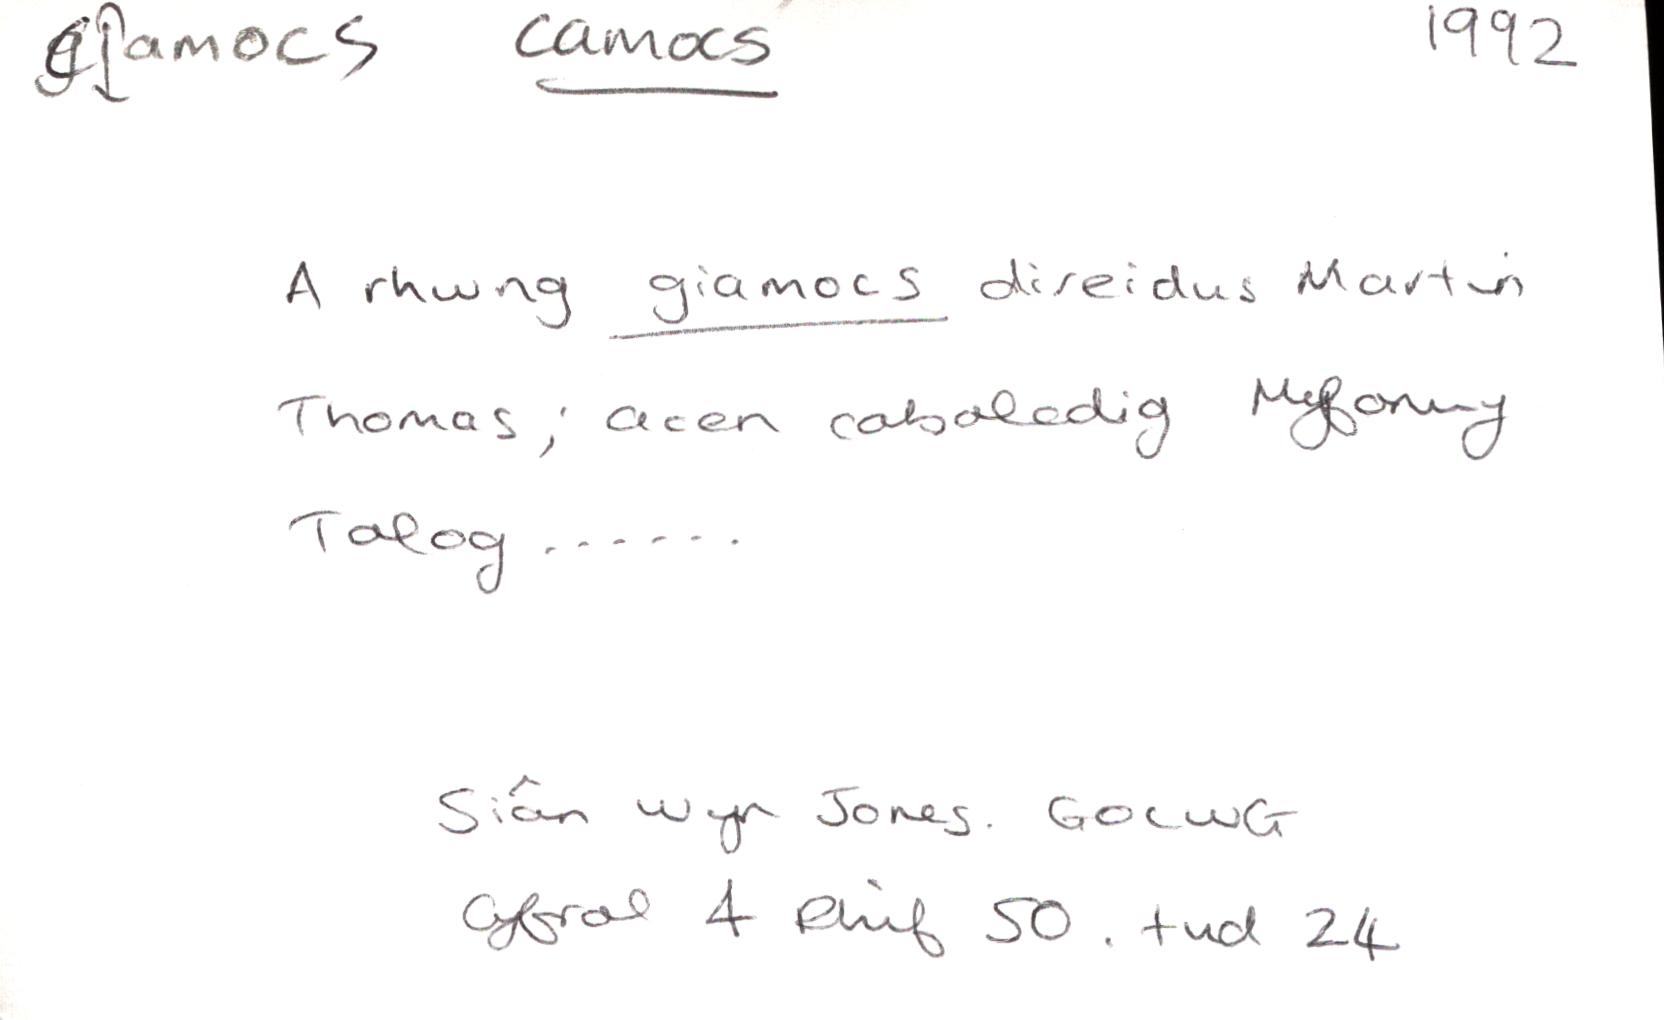 giamocs camocs 1992
A rhwng giamocs direidus Martin
Thomas; acen caboledig Myfanwy
Talog ......
Siân Wyn Jones. GOLWG
Cyfrol 4 Rhif 50. tud 24